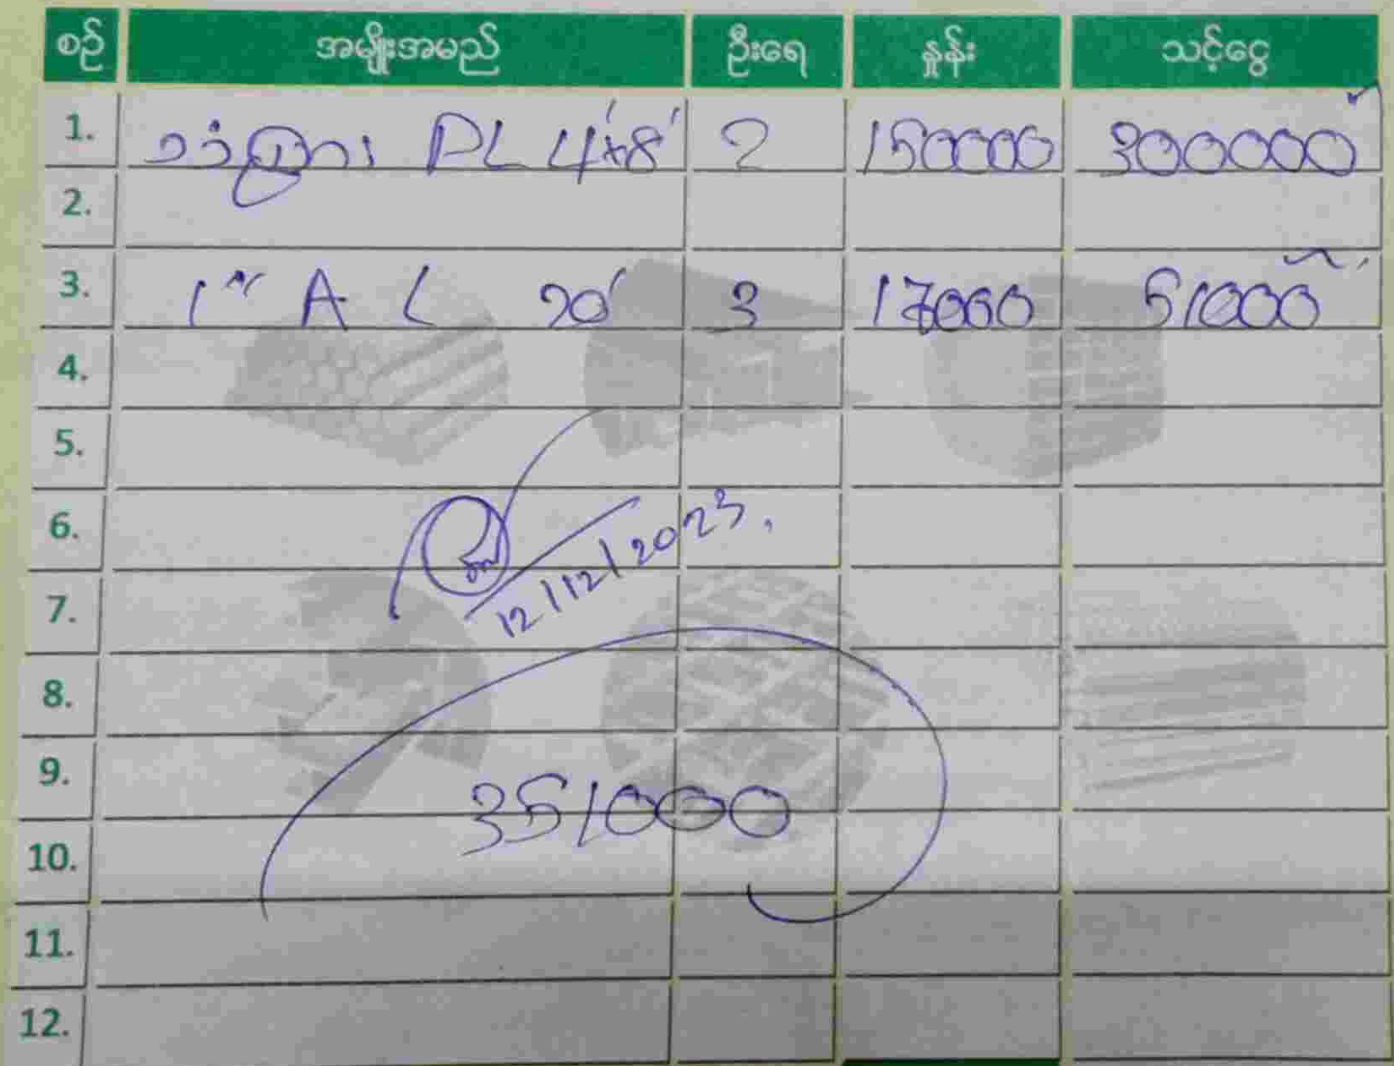 စဉ် အမျိုးအမည် ဦးရေ နှုန်း သင့်ငွေ
1. PL 4'x8' 2 150000 300000
2.
3. 1" A L 20' 3 17000 51000
4.
5.
6.
12/12/2023
7.
8.
9.
351000
10.
11.
12.